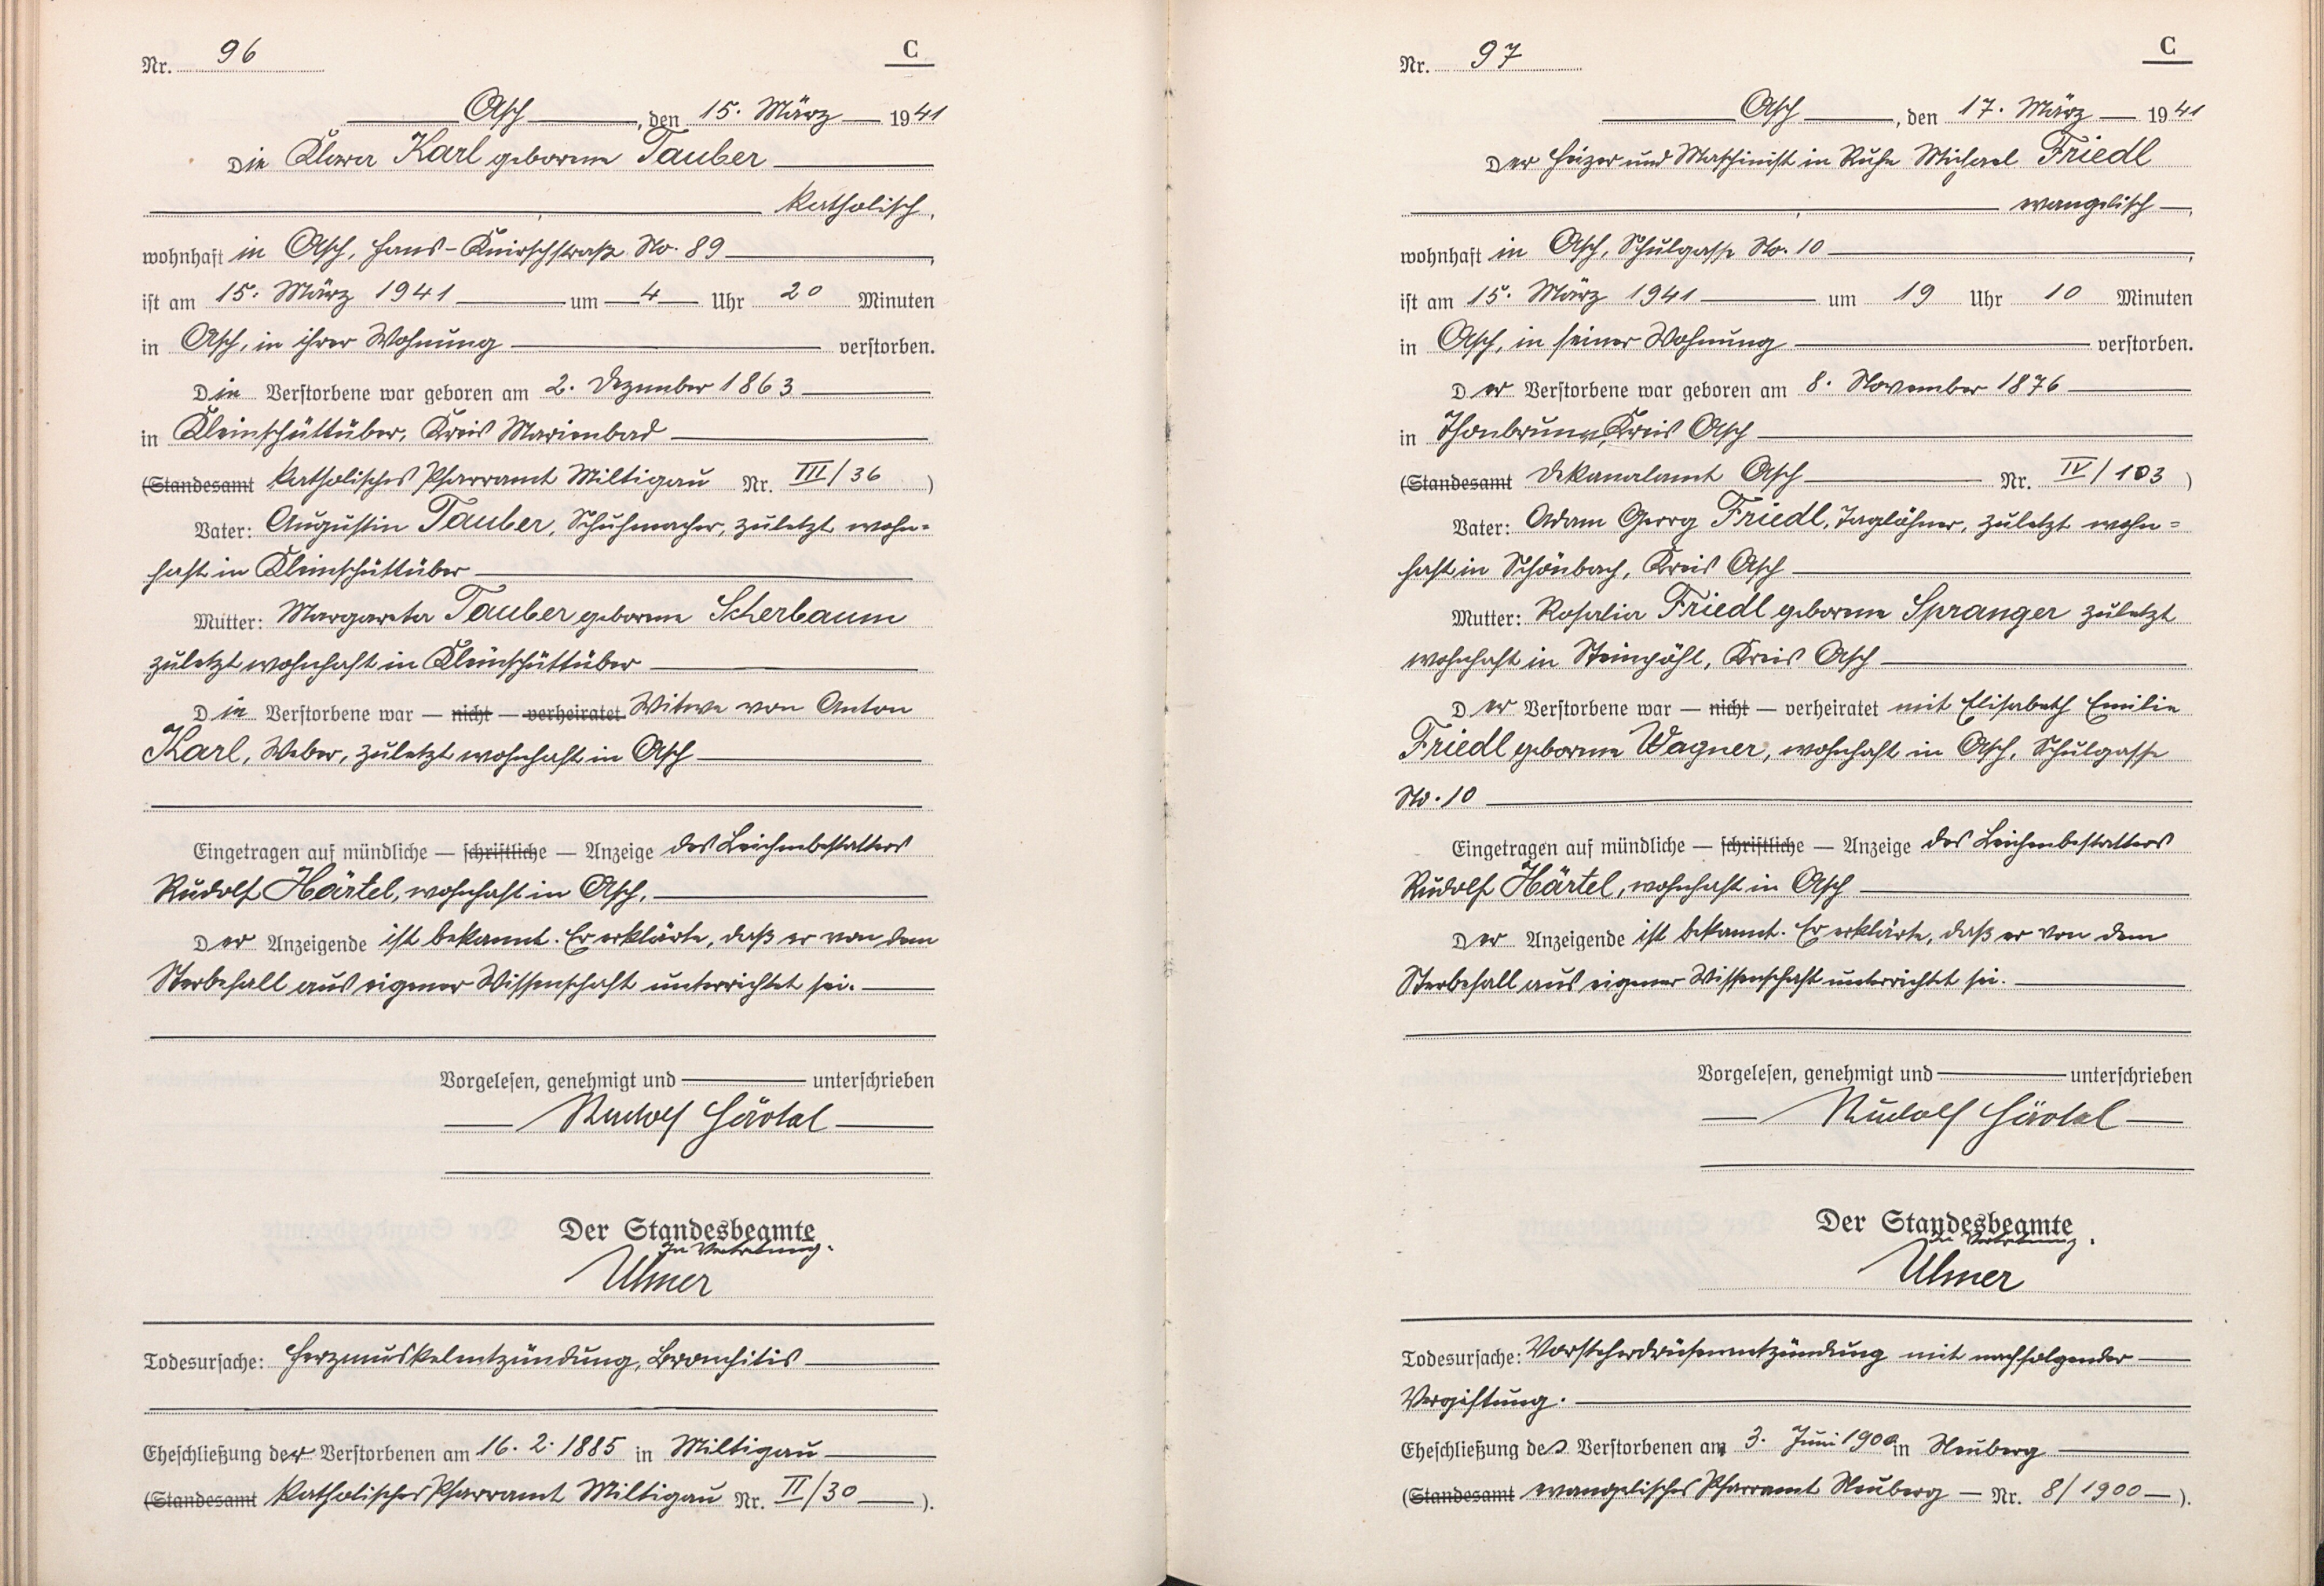 Nr. 96
C
Asch, den 15. März 1941
Die Klara Karl geborene Tauber
katholisch,
wohnhaft in Asch, Hans-Knirschstraße No. 89,
ist am 15. März 1941 um 4 Uhr 20 Minuten
in Asch, in ihrer Wohnung verstorben.
Die Verstorbene war geboren am 2. Dezember 1863
in Kleinschüttüber, Kreis Marienbad
(Standesamt katholisches Pfarramt Miltigau Nr. III/36)
Vater: Augustin Tauber, Schuhmacher, zuletzt wohn=
haft in Kleinschüttüber
Mutter: Margareta Tauber geborene Scherbaum
zuletzt wohnhaft in Kleinschüttüber
Die Verstorbene war — nicht — verheiratet Witwe von Anton
Karl, Weber, zuletzt wohnhaft in Asch
Eingetragen auf mündliche — schriftliche — Anzeige des Leichenbestatters
Rudolf Härtel, wohnhaft in Asch.
Der Anzeigende ist bekannt. Er erklärte, daß er von dem
Sterbefall aus eigener Wissenschaft unterrichtet sei.
Vorgelesen, genehmigt und unterschrieben
Rudolf Härtel
Der Standesbeamte
In Vertretung.
Ulmer
Todesursache: Herzmuskelentzündung, Bronchitis
Eheschließung der Verstorbenen am 16. 2. 1885 in Miltigau
(Standesamt katholisches Pfarramt Miltigau Nr. II/30).
Nr. 97
C
Asch, den 17. März 1941
Der Heizer und Maschinist in Ruhe Michael Friedl
evangelisch,
wohnhaft in Asch, Schulgasse No. 10,
ist am 15. März 1941 um 19 Uhr 10 Minuten
in Asch, in seiner Wohnung verstorben.
Der Verstorbene war geboren am 8. November 1876
in Thonbrunn, Kreis Asch
(Standesamt Dekanalamt Asch Nr. IV/103)
Vater: Adam Georg Friedl, Taglöhner, zuletzt wohn=
haft in Schönbach, Kreis Asch
Mutter: Rosalia Friedl geborene Spranger zuletzt
wohnhaft in Steinpöhl, Kreis Asch
Der Verstorbene war — nicht — verheiratet mit Elisabeth Emilie
Friedl geborene Wagner, wohnhaft in Asch, Schulgasse
No. 10
Eingetragen auf mündliche — schriftliche — Anzeige des Leichenbestatters
Rudolf Härtel, wohnhaft in Asch
Der Anzeigende ist bekannt. Er erklärte, daß er von dem
Sterbefall aus eigener Wissenschaft unterrichtet sei.
Vorgelesen, genehmigt und unterschrieben
Rudolf Härtel
Der Standesbeamte
In Vertretung.
Ulmer
Todesursache: Vorsteherdrüsenentzündung mit nachfolgender
Vergiftung.
Eheschließung des Verstorbenen am 3. Juni 1900 in Neuberg
(Standesamt evangelisches Pfarramt Neuberg — Nr. 8/1900 —).